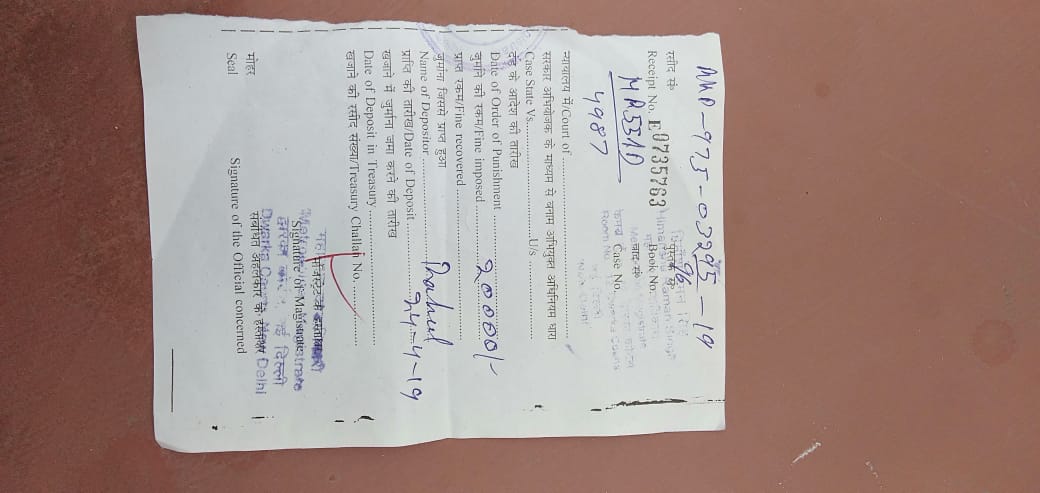 AMP-975-03295-19
रसीद सं.
Receipt No. E 0735763
पुस्तक सं.
Book No. 96
वाद सं.
Case No.
4987
न्यायालय में/Court of
सरकार अभियोजक के माध्यम से बनाम अभियुक्त अधिनियम धारा
Case State Vs. U/s
दंड के आदेश की तारीख
Date of Order of Punishment
जुर्माने की रकम/Fine imposed 20000/-
प्राप्त रकम/Fine recovered
जुर्माना जिससे प्राप्त हुआ
Name of Depositor Rahul
प्राप्ति की तारीख/Date of Deposit 24-4-19
खजाने में जुर्माना जमा करने की तारीख
Date of Deposit in Treasury
खजाने की रसीद संख्या/Treasury Challan No.
Signature of Magistrate
संबंधित अहलकार के हस्ताक्षर
मोहर
Seal
Signature of the Official concerned